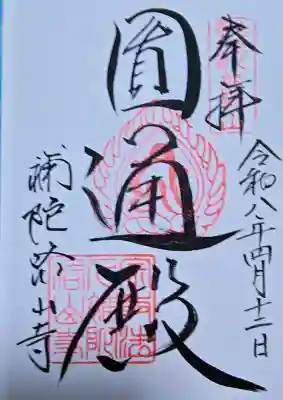 奉拝
令和八年四月十二日
圓通殿
補陀洛山寺